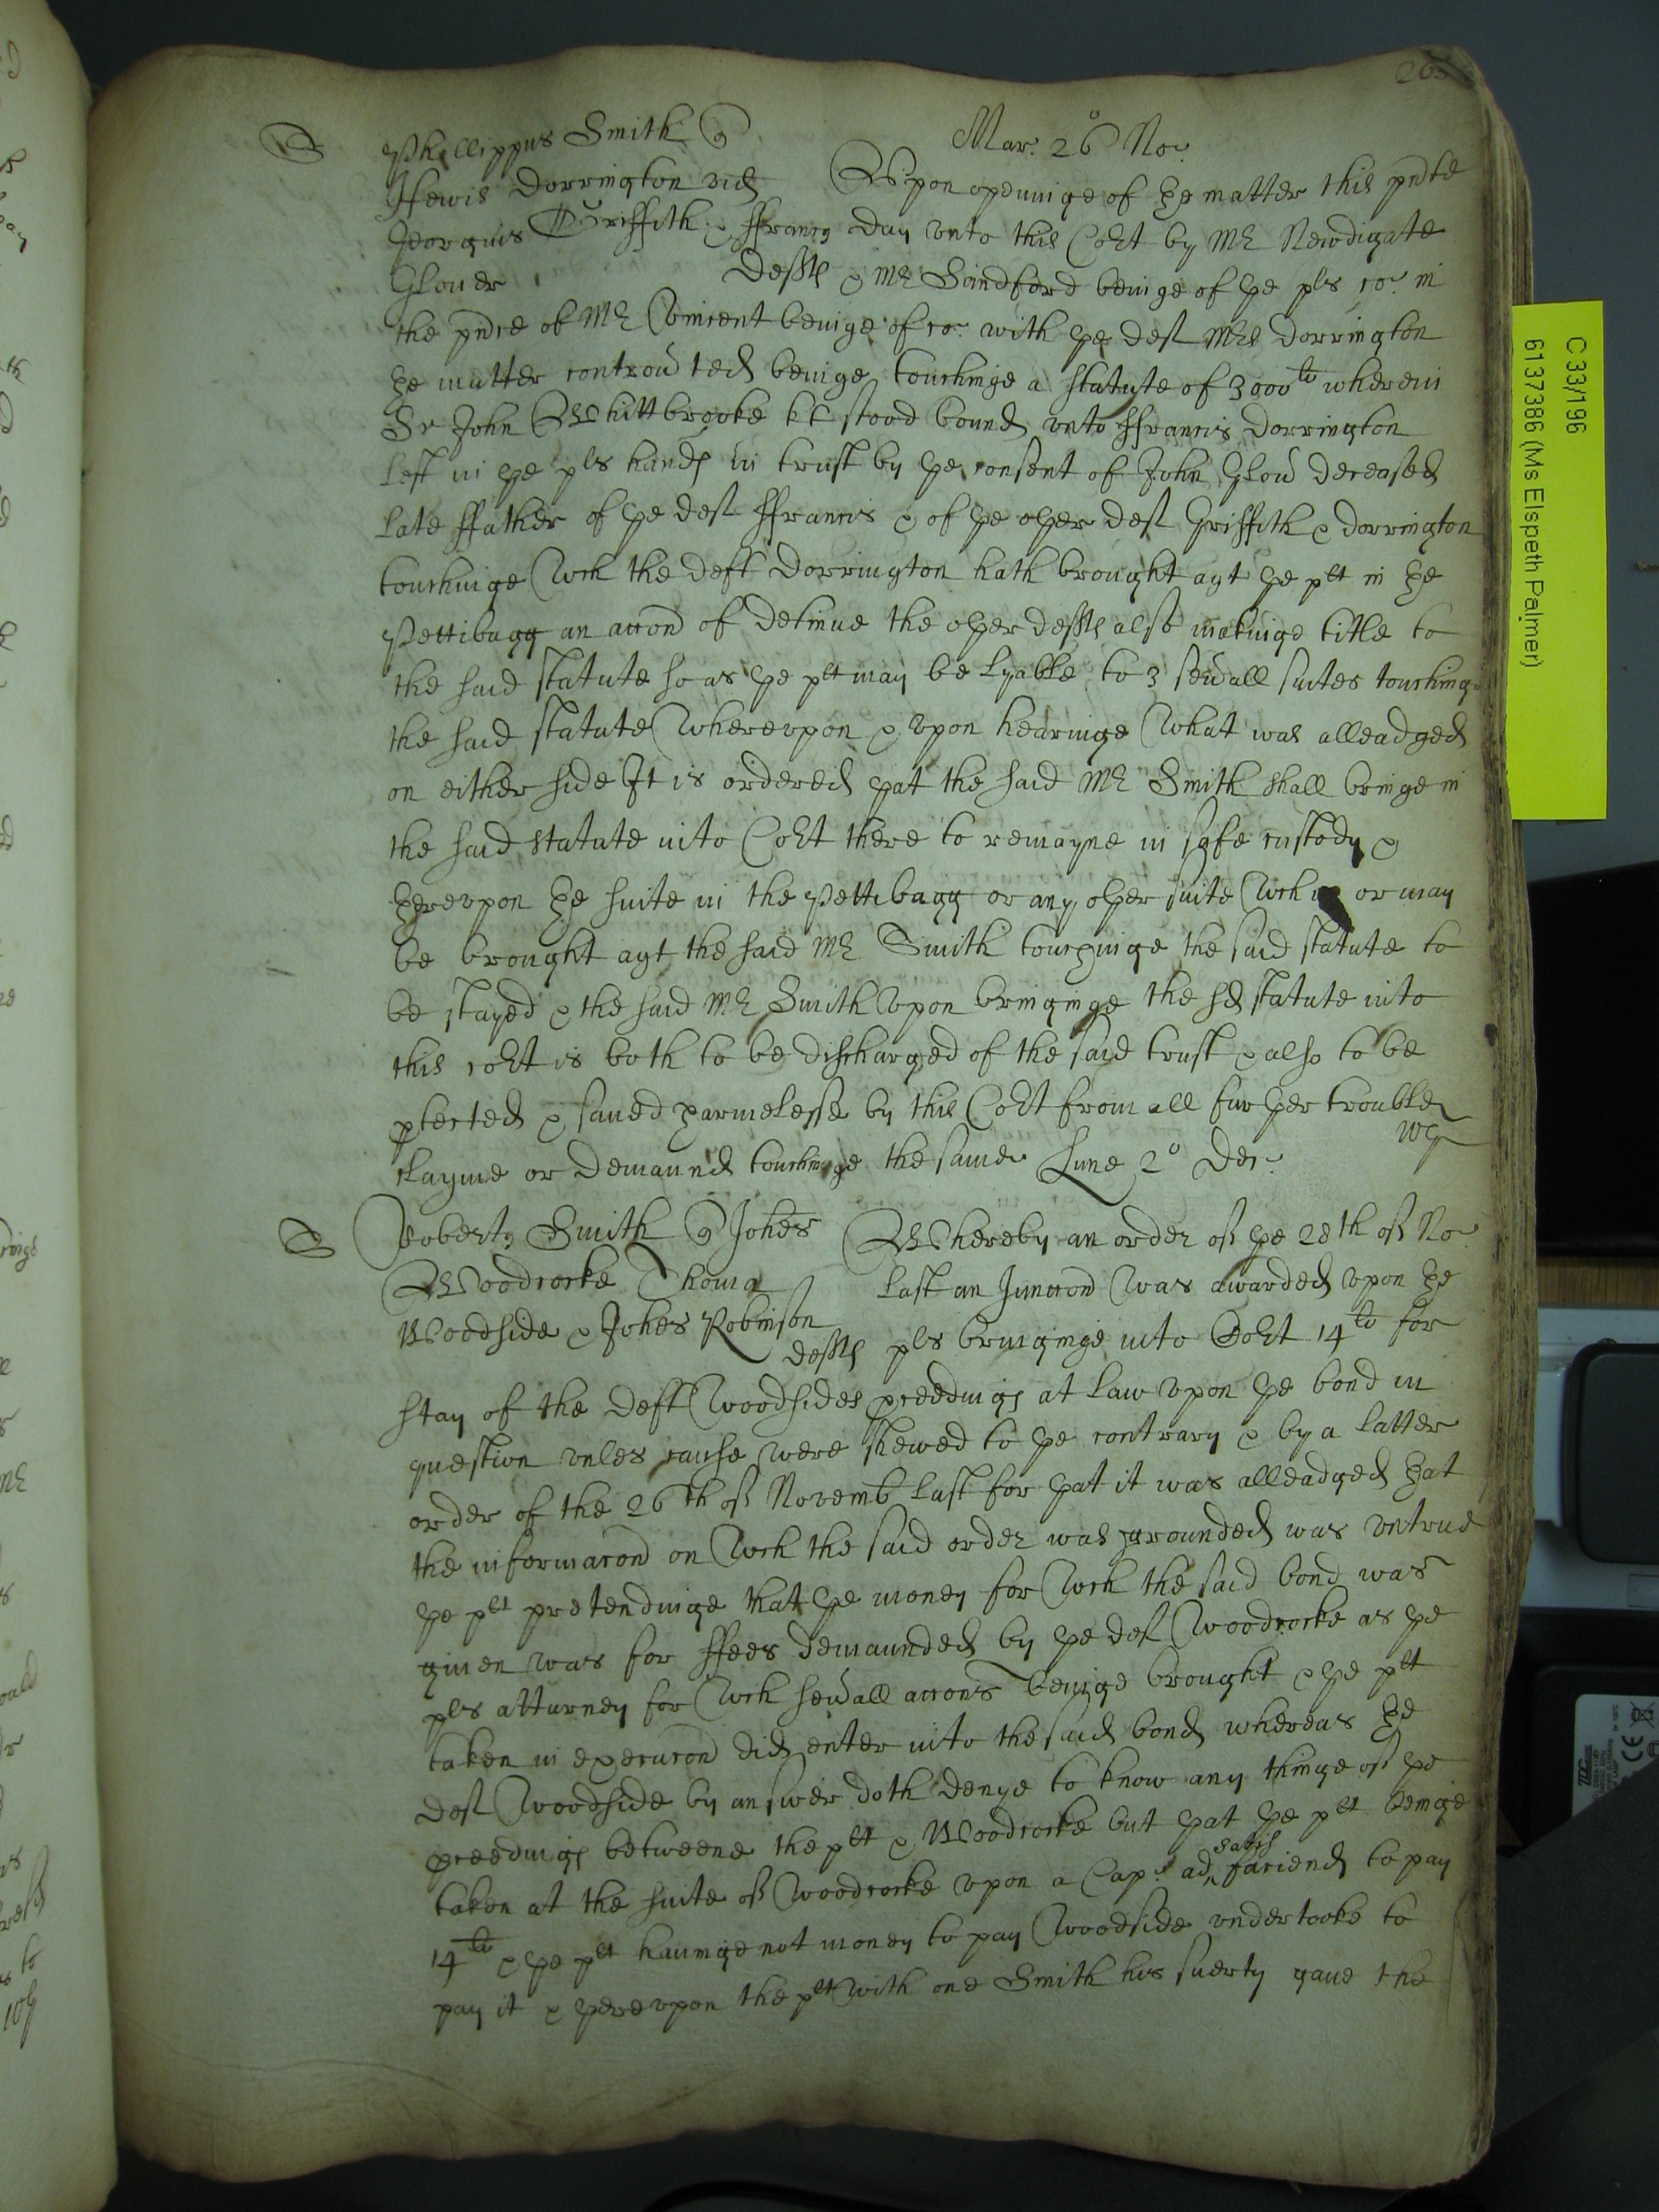 265
S Phillippus Smith q
Mar. 26º No:
Lewis Dorrington vid Vpon openinge of þe matter this pnte
Georgius Griffith & ffrancis day vnto this Cort by Mr Newdigate
Glover defftes & Mr Sandford beinge of þe pls co: in
the pnce of Mr Vincent beinge of co: with þe def Mrs Dorrington
þe matter controuted beinge touchinge a statute of 3000li wherein
Sr John Whittbrooke kt stood bound vnto ffrancis Dorrington
left in þe pls hands in trust by þe consent of John Glou deceased
late ffather of þe def ffrancis & of þe oþer def Griffith & Dorrington
touchinge wch the deft Dorrington hath brought agt þe plt in þe
Pettibagg an accon of detinue the oþer defftes also makinge title to
the said statute so as þe plt may be lyable to 3 seuall suites touchinge
the said statute Wherevpon & vpon hearinge what was alleadged
on either side It is ordered þat the said Mr Smith shall bringe in
the said statute into Cort there to remayne in safe custody &
þerevpon þe suite in the Pettibagg or any oþer suite wch or may
be brought agt the said Mr Smith touchinge the said statute to
be stayed & the said Mr Smith vpon bringinge the sd statute into
this cort is both to be discharged of the said trust & also to be
ptected & saued harmelesse by this Cort from all furþer trouble
clayme or demaund touchinge the same Lune 2º Dec:
S Robertus Smith q Johes Whereby an order of þe 28th of No:
Woodcocke Thomas last an Iniuncon was awarded vpon þe
Woodside & Johes Robinson defftes pls bringinge into Cort 14li for
stay of the deft Woodsides pceedings at law vpon þe bond in
question vnles cause were shewed to þe contrary & by a latter
order of the 26th of Novemb last for þat it was alleadged þat
the informacon on wch the said order was grounded was vntrue
þe plt pretendinge that þe money for wch the said bond was
giuen was for ffees demaunded by þe def Woodcocke as þe
pls atturney for wch seuall accons beinge brought & þe plt
taken in execucon did enter into the said bond whereas þe
def Woodside by answer doth denye to know any thinge of þe
pceedings betweene the plt & Woodcocke but þat þe plt beinge
taken at the suite of Woodcocke vpon a Cap: ad satisf faciend to pay
14li & þe plt hauinge not money to pay Woodside vndertooke to
pay it & þerevpon the plt with one Smith his suerty gaue the
C 33/196
6137386 (Ms Elspeth Palmer)